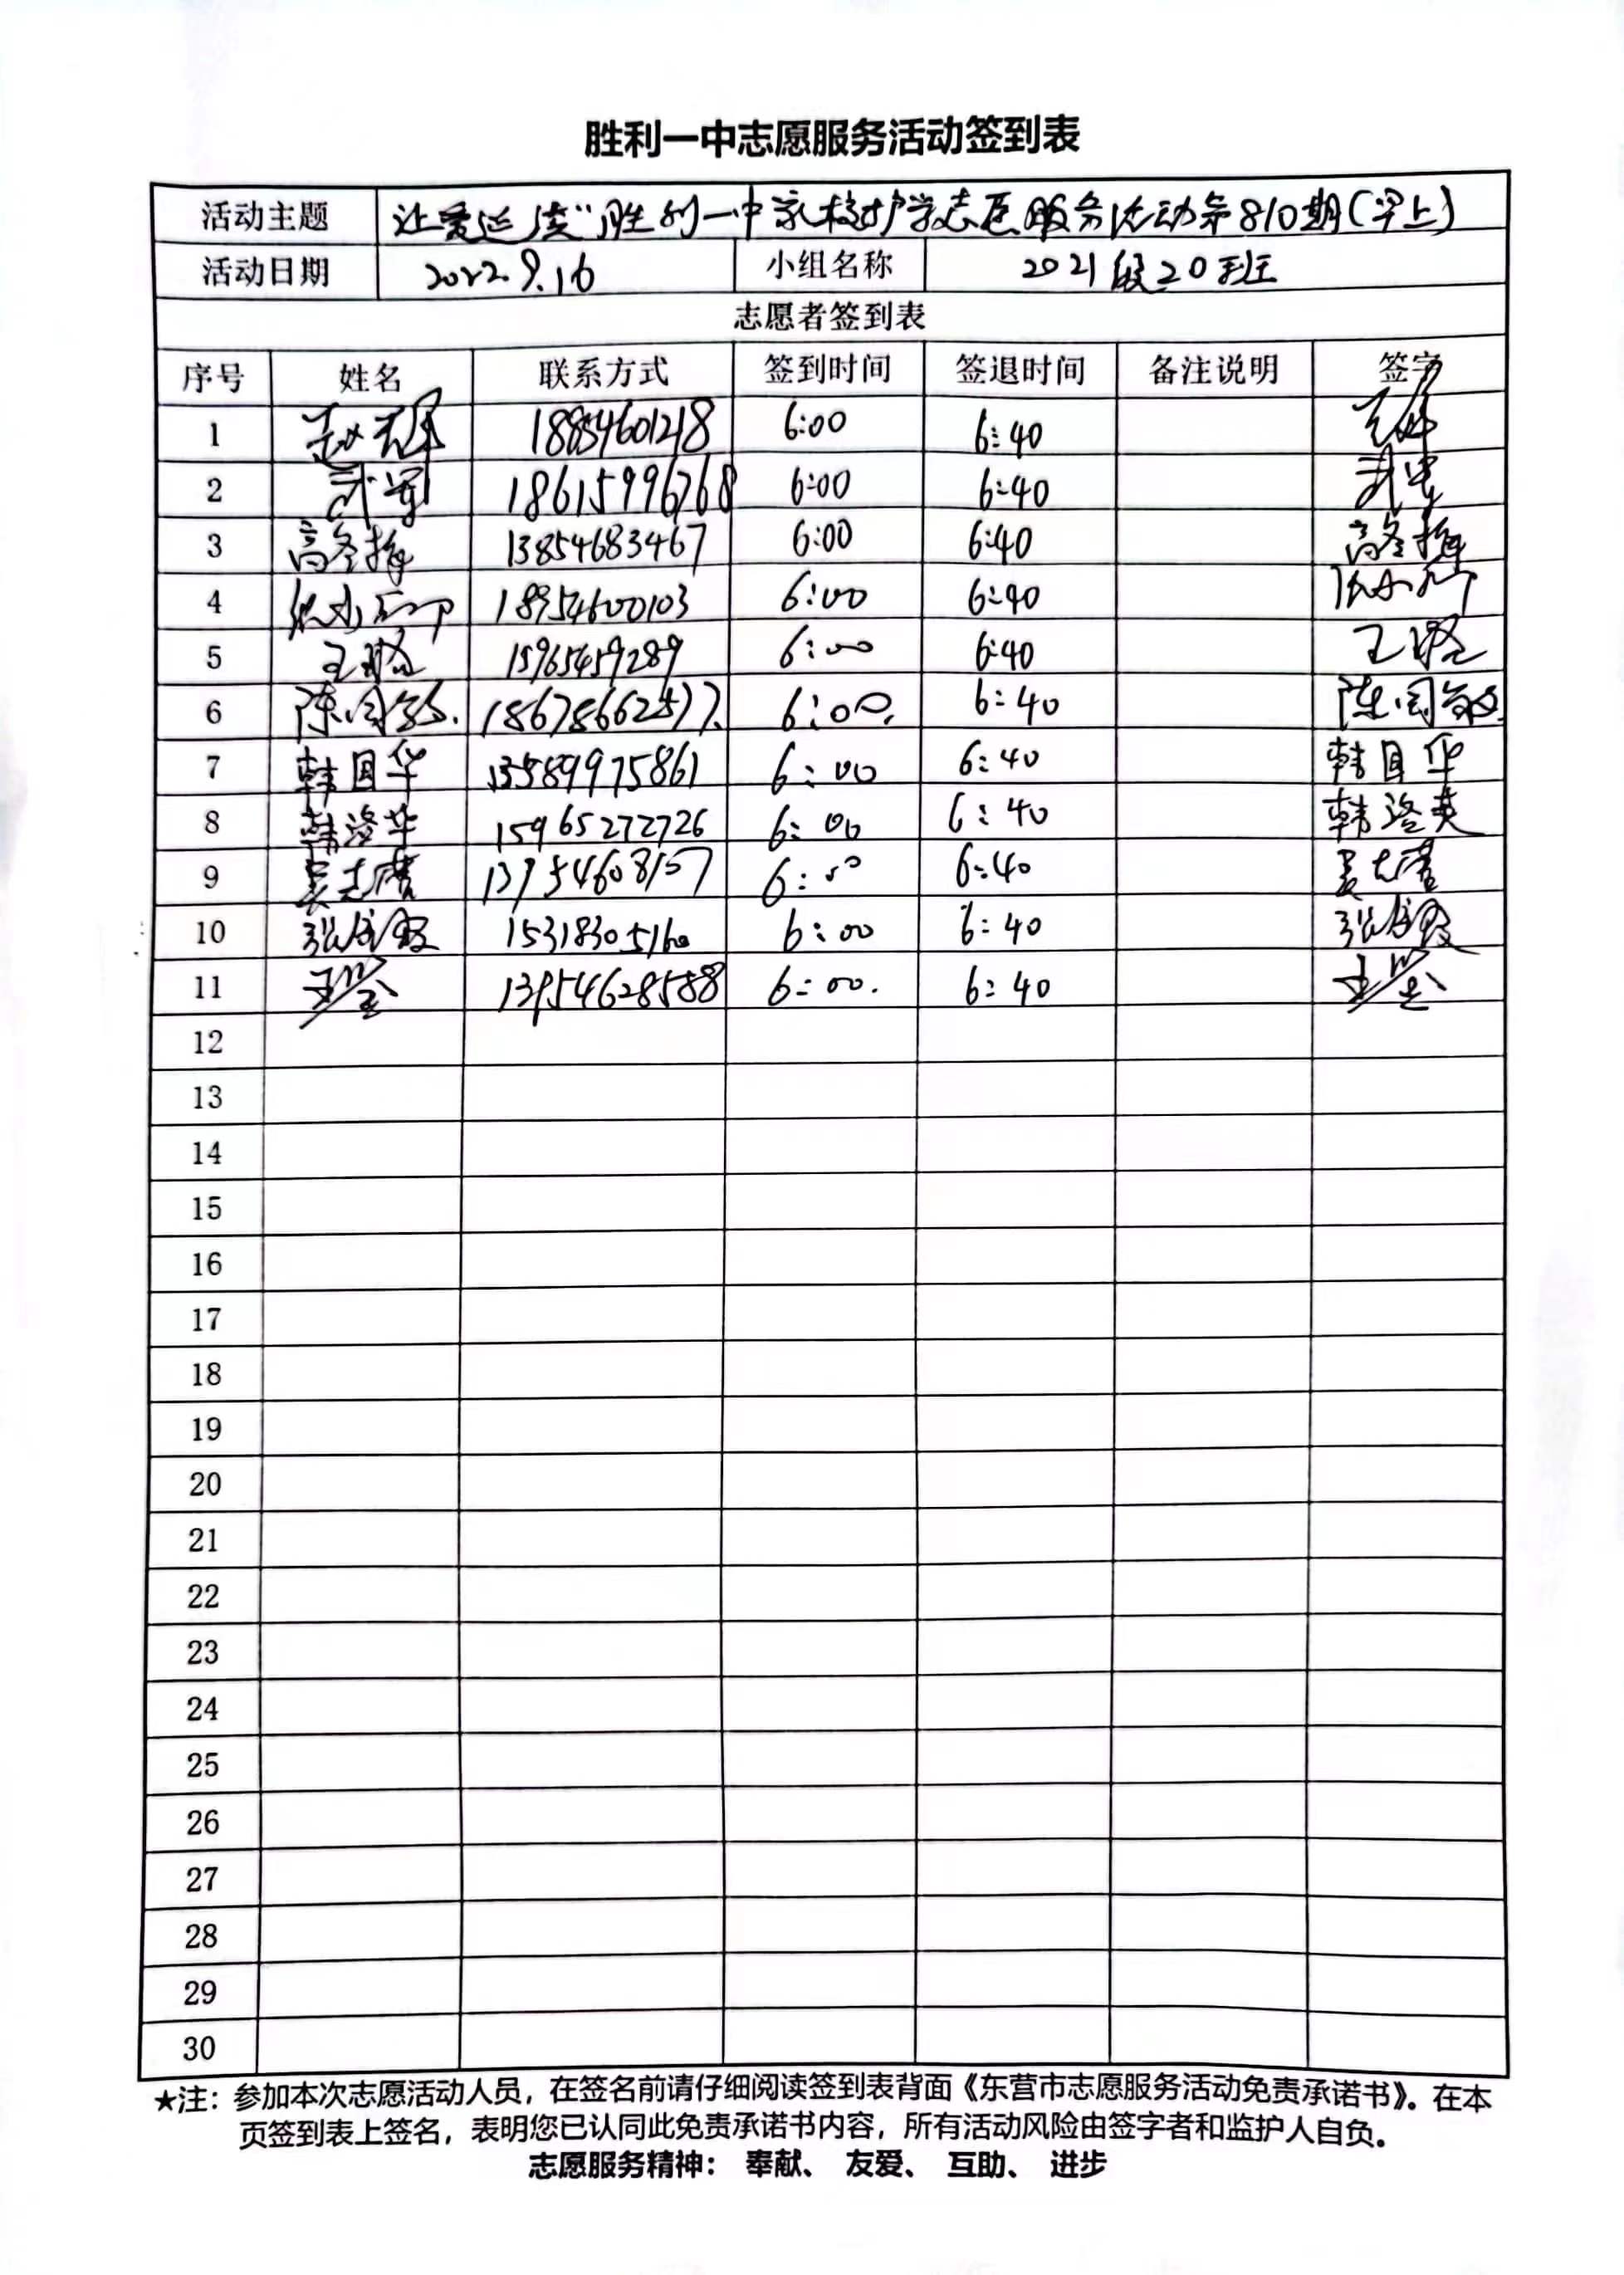 胜利一中志愿服务活动签到表
活动主题 让爱延续"胜利一中家校护学志愿服务活动第810期(早上)
活动日期 2022.9.16 小组名称 2021级20班
志愿者签到表
序号 姓名 联系方式 签到时间 签退时间 备注说明 签字
1 18854601218 6:00 6:40
2 武军 18615996768 6:00 6:40 武军
3 高冬梅 13854683467 6:00 6:40 高冬梅
4 18954600103 6:00 6:40
5 王 15965459289 6:00 6:40 王
6 陈同敏. 18678662577. 6:00. 6:40 陈同敏
7 韩国华 13589975861 6:00 6:40 韩国华
8 韩 15965272726 6:00 6:40 韩
9 吴志 13954608157 6:00 6:40 吴志
10 张 15318305160 6:00 6:40 张
11 王 13954628588 6:00. 6:40 王
12
13
14
15
16
17
18
19
20
21
22
23
24
25
26
27
28
29
30
★注：参加本次志愿活动人员，在签名前请仔细阅读签到表背面《东营市志愿服务活动免责承诺书》。在本
页签到表上签名，表明您已认同此免责承诺书内容，所有活动风险由签字者和监护人自负。
志愿服务精神： 奉献、 友爱、 互助、 进步